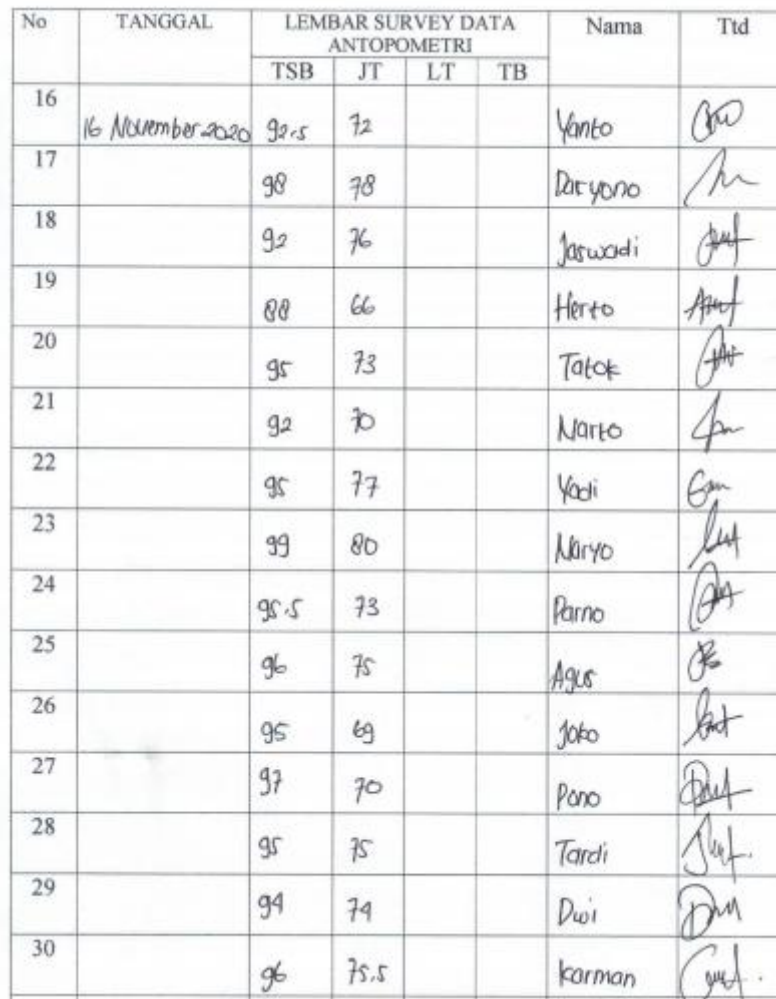 No TANGGAL LEMBAR SURVEY DATA ANTOPOMETRI Nama Ttd
TSB JT LT TB
16 16 November 2020 92.5 72 Yanto
17 98 78 Daryono
18 92 76 Jaswadi
19 88 66 Herto
20 95 73 Tatok
21 92 70 Narto
22 95 77 Yadi
23 99 80 Naryo
24 95.5 73 Parno
25 96 75 Agus
26 95 69 Joko
27 97 70 Pono
28 95 75 Tardi
29 94 74 Dwi
30 96 75.5 Karman